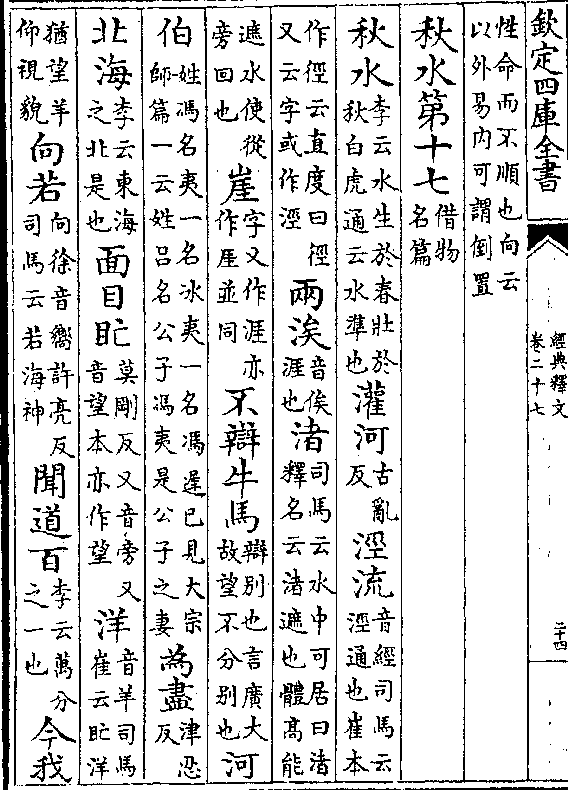 欽定四庫全書
經典釋文
卷二十七
二十四
性命而不順也向云
以外易內可謂倒置
秋水第十七借物
名篇
秋水李云水生於春壯於
秋白虎通云水準也灌河古亂
反涇流音經司馬云
涇通也崔本
作徑云直度曰徑
又云字或作涇兩涘音俟
涯也渚司馬云水中可居曰渚
釋名云渚遮也體高能
遮水使從
旁回也崖字又作涯亦
作厓並同不辯牛馬辯別也言廣大
故望不分別也河
伯姓馮名夷一名冰夷一名馮遲已見大宗
師篇一云姓呂名公子馮夷是公子之妻為盡津忍
反
北海李云東海
之北是也面目盳莫剛反又音旁又
音望本亦作望洋音羊司馬
崔云盳洋
猶望羊
仰視貌向若向徐音嚮許亮反
司馬云若海神聞道百李云萬分
之一也今我